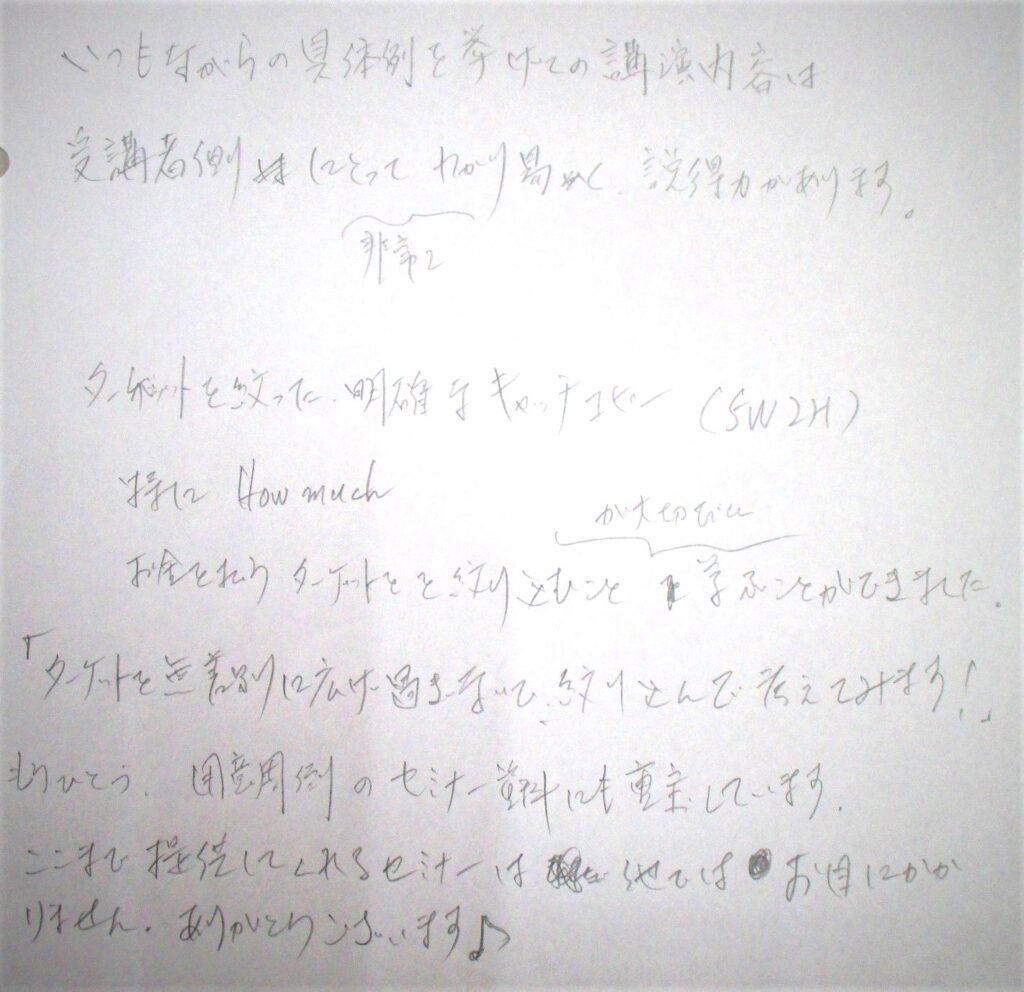 いつもながらの具体例を挙げての講演内容は
受講者側にとってわかり易く、説得力があります。
非常に
ターゲットを絞った明確なキャッチコピー (5W2H)
特に How much
が大切だと
お金を払うターゲットをと絞り込むこと 学ぶことができました。
「ターゲットを無差別に広げ過ぎないで、絞り込んで考えてみます!」
もうひとつ、用意周倒のセミナー資料にも重宝しています。
ここまで提供してくれるセミナーは 他では お目にかか
りません。ありがとうございます♪